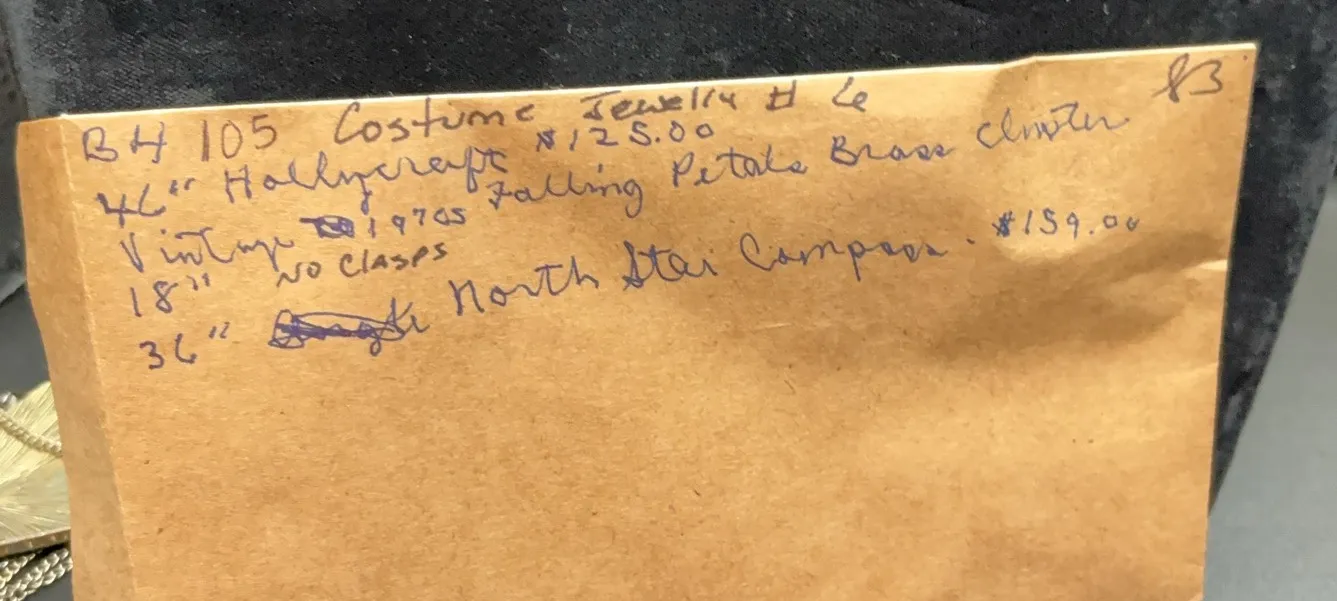 83
BH 105 Costume Jewelry # 6
46" Hollycraft $125.00
Vintage 1970s Falling Petals Brass Cluster
18" NO CLASPS
36" North Star Compass. $159.00